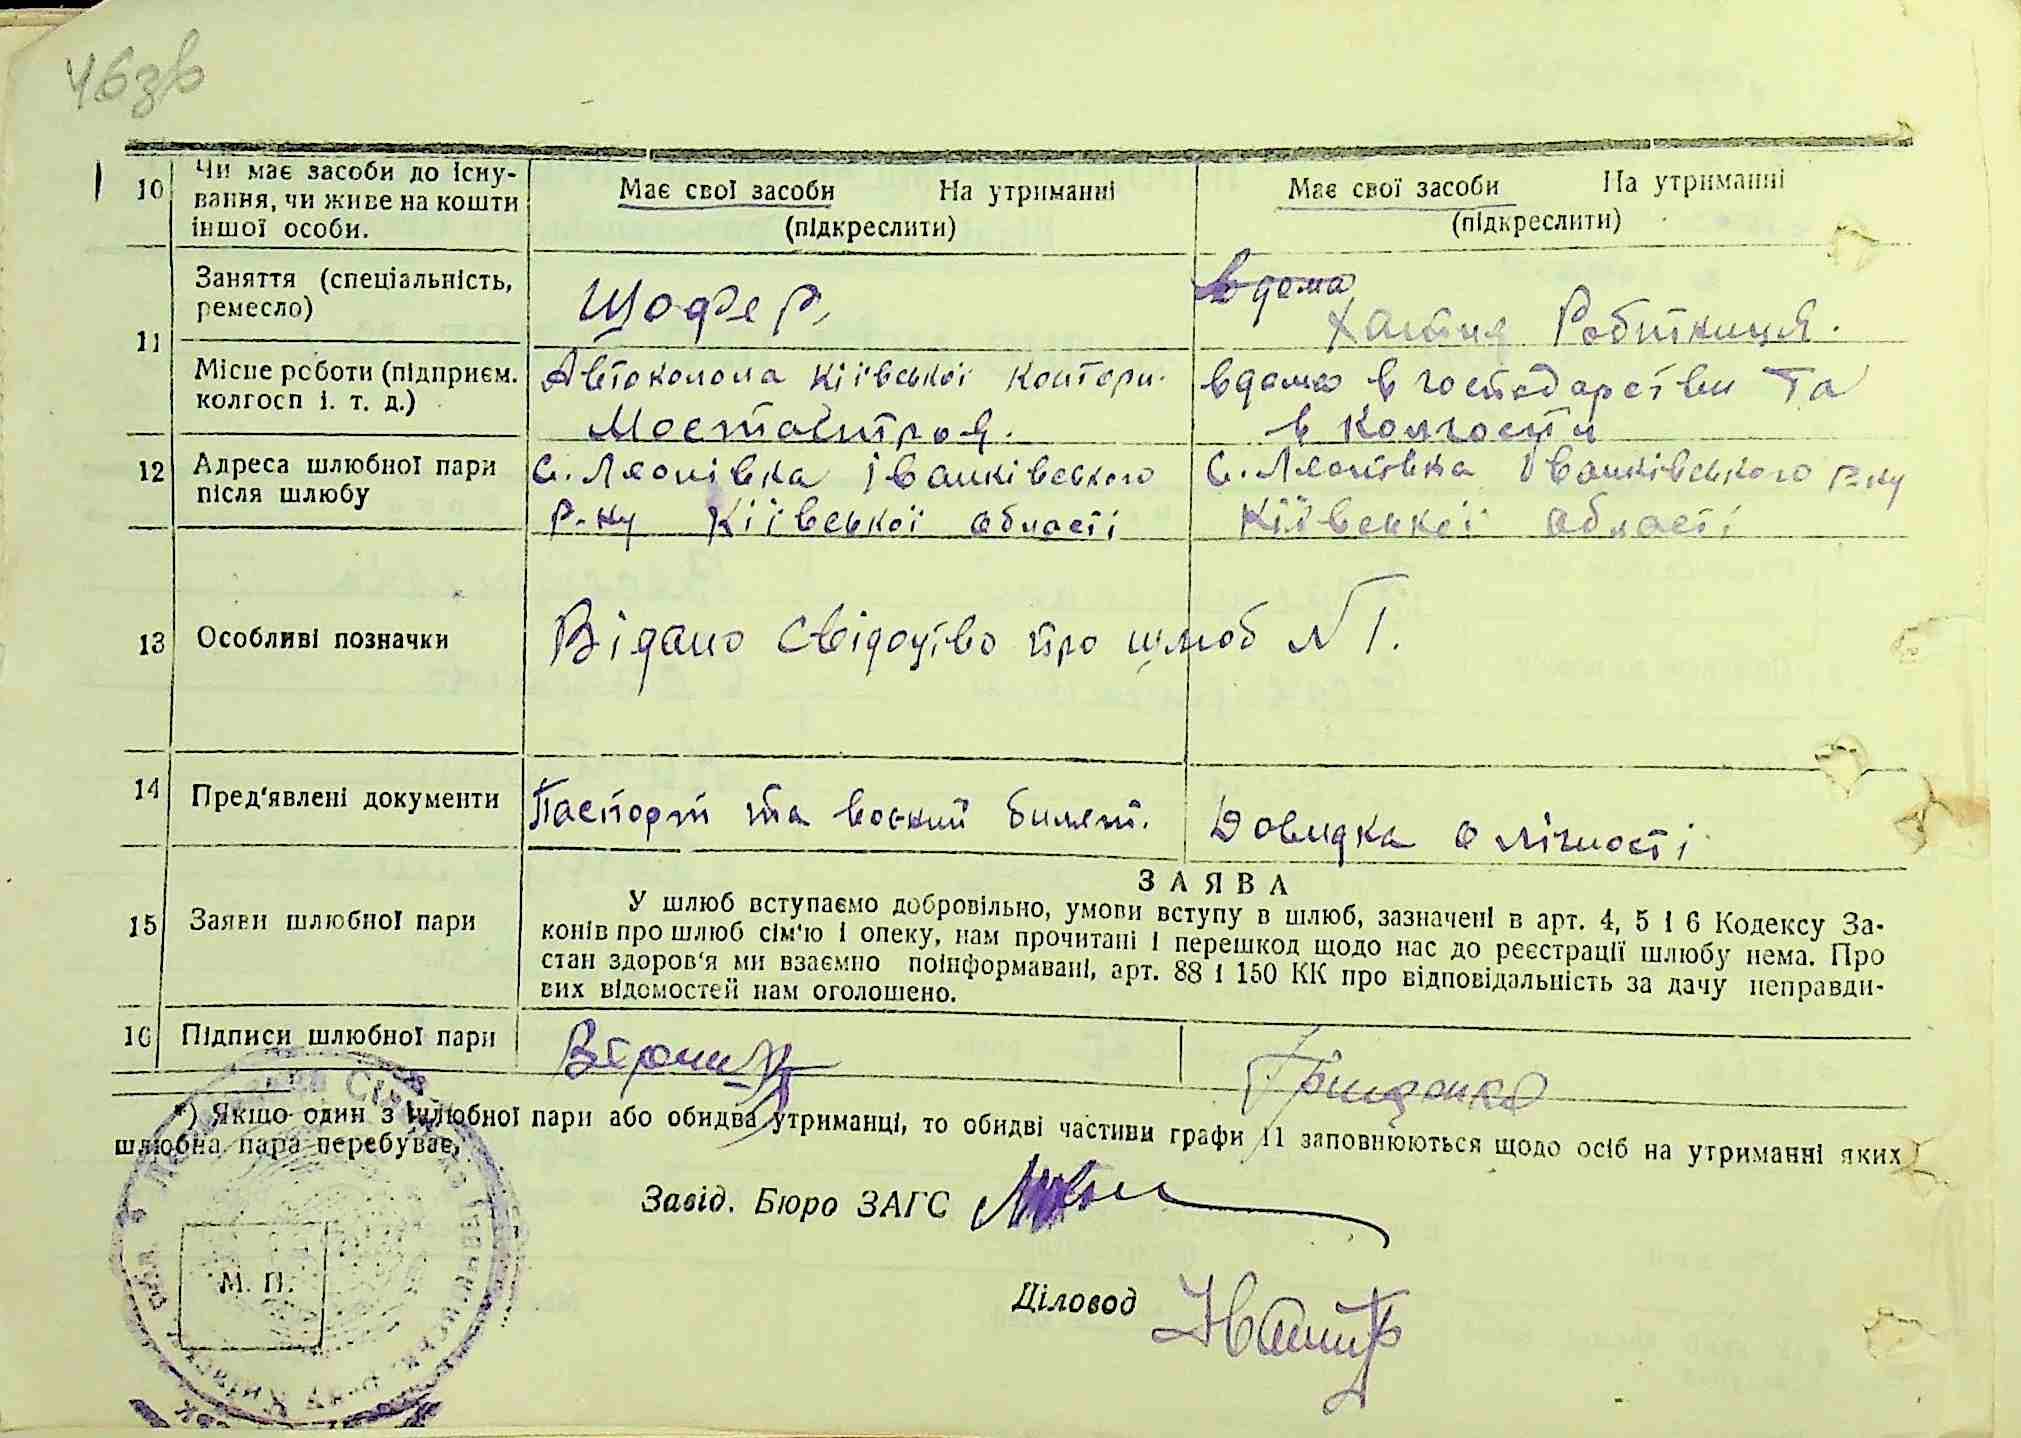 46зв
10 Чи має засоби до існу-
вання, чи живе на кошти
іншої особи.
Має свої засоби На утриманні
(підкреслити)
Має свої засоби На утриманні
(підкреслити)
11 Заняття (спеціальність,
ремесло)
Щофер.
вдома
Хатня Робітниця.
Місце роботи (підприєм.
колгосп і. т. д.)
Автоколона Кіївської контори.
Мостобуд
вдома в господарстви та
в колгоспи
12 Адреса шлюбної пари
після шлюбу
с. Леонівка Іванківського
р-ну Кіївської області
с. Леонівка Іванківського р-ну
Кіївської області
13 Особливі позначки
Відано свідоцтво про шлюб № 1.
14 Пред'явлені документи
Паспорт та воєний билет.
Довидка о лічності
15 Заяви шлюбної пари
ЗАЯВА
У шлюб вступаємо добровільно, умови вступу в шлюб, зазначені в арт. 4, 5 і 6 Кодексу За-
конів про шлюб сім'ю і опеку, нам прочитані і перешкод щодо нас до реєстрації шлюбу нема. Про
стан здоров'я ми взаємно поінформавані, арт. 88 і 150 КК про відповідальність за дачу неправди-
вих відомостей нам оголошено.
16 Підписи шлюбної пари
Грищенко
*) Якщо один з шлюбної пари або обидва утриманці, то обидві частини графи 11 заповнюються щодо осіб на утриманні яких
шлюбна пара перебуває,
Завід. Бюро ЗАГС
М. П.
Діловод